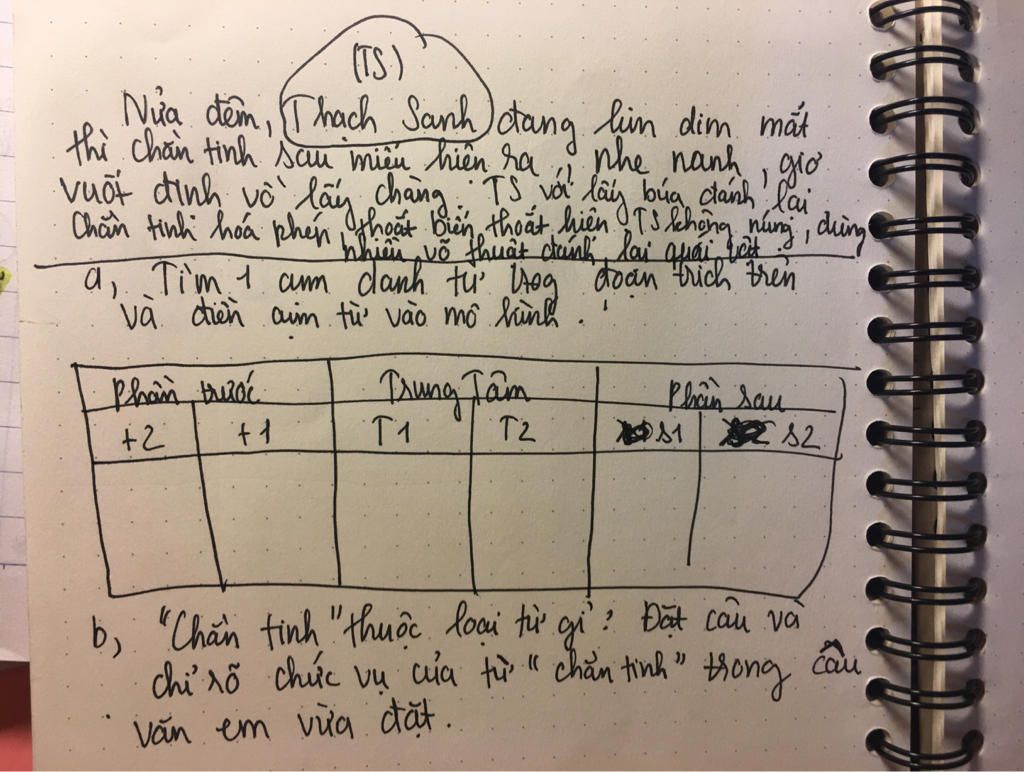 (TS)
Nửa đêm, Thạch Sanh đang lim dim mắt
thì chằn tinh sau miếu hiện ra, nhe nanh, giơ
vuốt định vồ lấy chàng. TS với lấy búa đánh lại
Chằn tinh hoá phép, thoắt biến, thoắt hiện. TS không núng, dùng
nhiều võ thuật đánh lại quái vật.
a, Tìm 1 cụm danh từ trog đoạn trích trên
và điền cụm từ vào mô hình.
Phần trước Trung Tâm Phần sau
t2 t1 T1 T2 s1 s2
b, "Chằn tinh" thuộc loại từ gì? Đặt câu và
chỉ rõ chức vụ của từ "chằn tinh" trong câu
văn em vừa đặt.